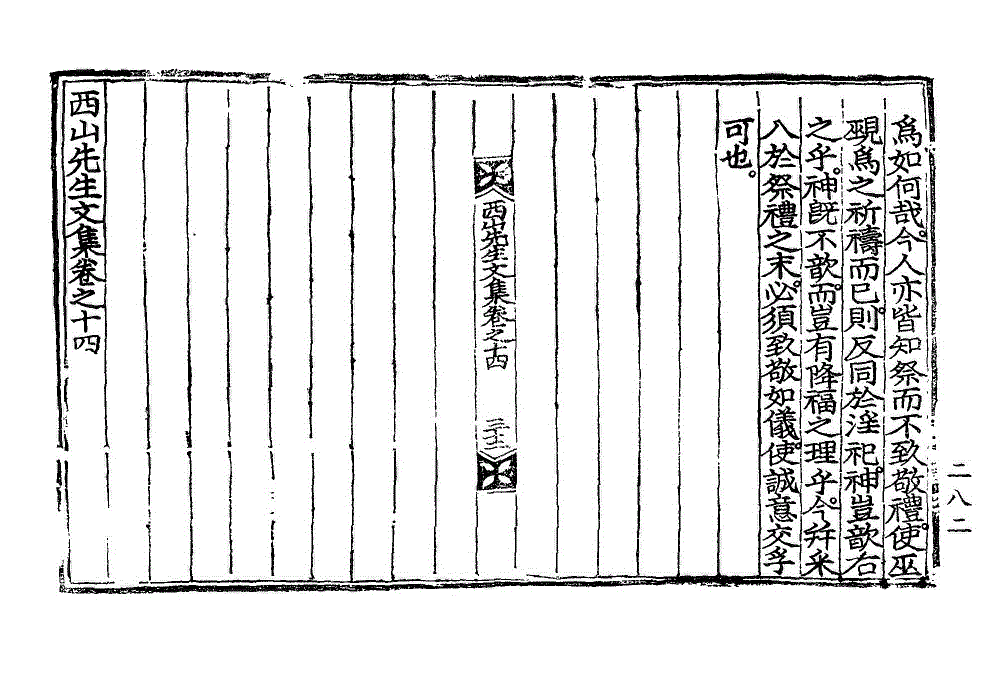 爲如何哉。今人亦皆知祭而不致敬禮。使巫
覡爲之祈禱而已。則反同於淫祀。神豈歆右
之乎。神旣不歆。而豈有降福之理乎。今幷釆
入於祭禮之末。必須致敬如儀。使誠意交孚
可也。
西山先生文集卷之十四
西山先生文集卷之十四
二八二